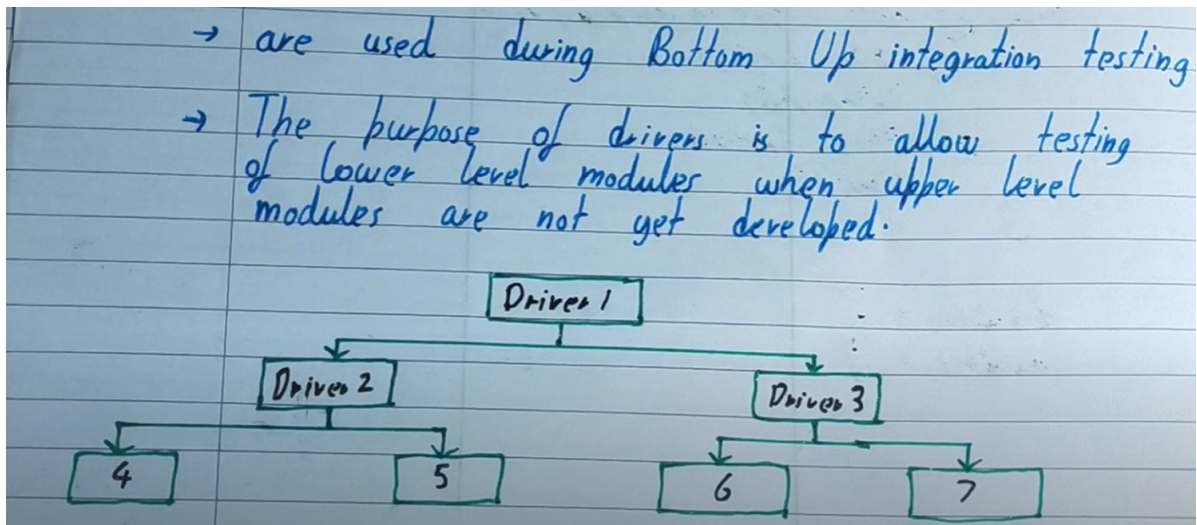 → are used during Bottom Up integration testing
→ The purpose of drivers is to allow testing
of lower level modules when upper level
modules are not yet developed.
Driver 1
Driver 2
Driver 3
4
5
6
7